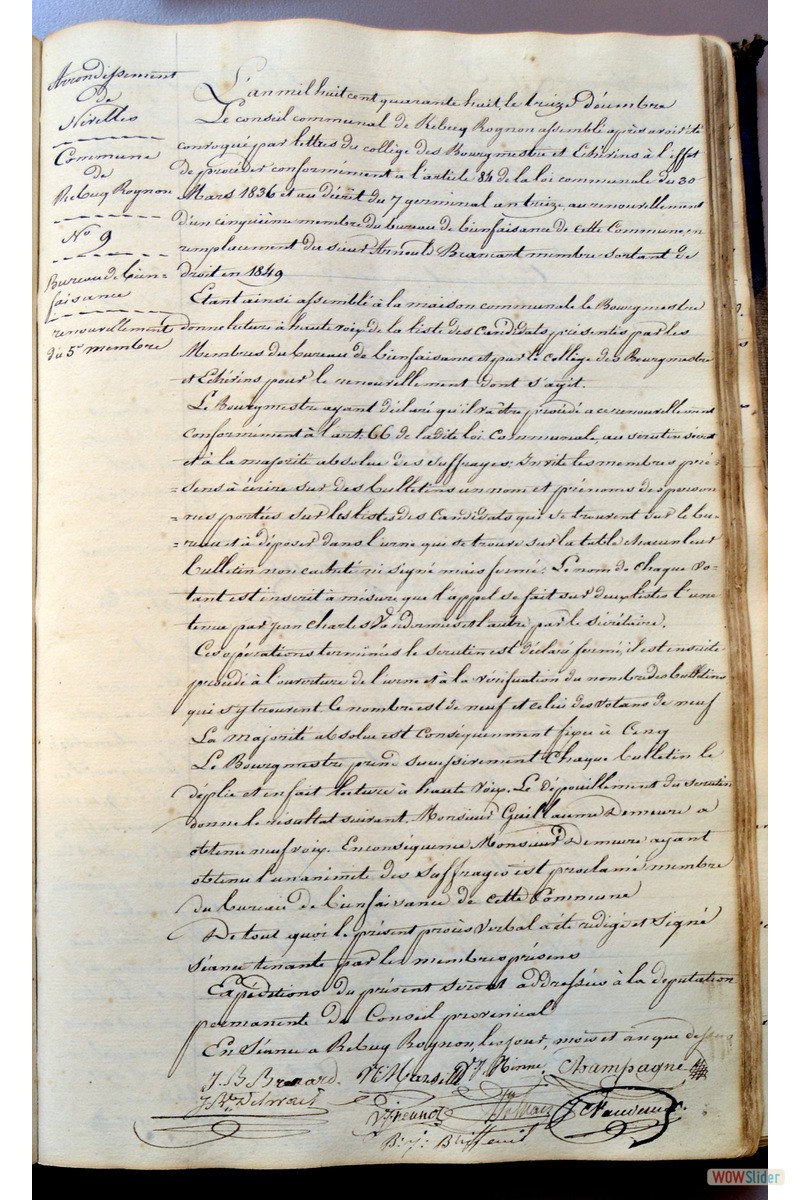 Arrondissement
de
Nivelles
Commune
de
Rebecq Rognon
N° 9
Bureau de bien-
faisance
renouvellement
du 5e membre
L'an mil huit cent quarante huit, le treize décembre
Le conseil communal de Rebecq Rognon assemblé après avoir été
convoqué par lettres du collège des Bourgmestre et Echevins à l'effet
de procéder conformément à l'article 84 de la loi communale du 30
Mars 1836 et au décrèt du 7 germinal an treize au renouvellement
d'un cinquième membre du bureau de bienfaisance de cette Commune, en
remplacement du sieur Arnould Brancart membre sortant de
droit en 1849
Etant ainsi assemblé à la maison communale le Bourgmestre
donne lecture à haute voix de la liste des candidats présentés par les
Membres du bureau de bienfaisance et par le collège des Bourgmestre
et Echevins pour le renouvellement dont s'agit.
Le Bourgmestre ayant déclaré qu'il va être procédé a ce renouvellement
conformément à l'art. 66 de la dite loi Communale, au scrutin secret
et à la majorité absolue des suffrages; Invite les membres pré-
=sens à écrire sur des bulletins un nom et prénoms des person-
=nes portées sur les listes des candidats qui se trouvent sur le bu-
=reau et à déposer dans l'urne qui se trouve sur la table chacun leur
bulletin non cacheté ni signé mais fermé. Le nom de chaque vo-
tant est inscrit à mésure que l'appel se fait sur deux listes l'une
tenue par Jean Charles et l'autre par le sécrétaire.
Ces opérations terminées le scrutin est déclaré fermé, il est ensuite
procédé à l'ouverture de l'urne et à la vérification du nombre des bulletins
qui s'y trouvent le nombre est de neuf et celui des votans de neuf
La majorité absolue est conséquemment fixée à Cinq
Le Bourgmestre prend sucessivement chaque bulletin le
déplie et en fait lecture à haute voix. Le dépouillement du scrutin
donne le résultat suivant Monsieur Guillaume Demeure a
obtenu neuf voix. En conséquence Monsieur Demeure ayant
obtenu l'unanimité des suffrages est proclamé membre
du bureau de bienfaisance de cette Commune
De tout quoi le présent procès verbal a été rédigé et signé
séance tenante par les membres présens
Expéditions du présent seront addressées à la députation
permanente du Conseil provincial
En Séance a Rebecq Rognon, les jour, mois et an que dessus
J. B. Brenard. Champagne